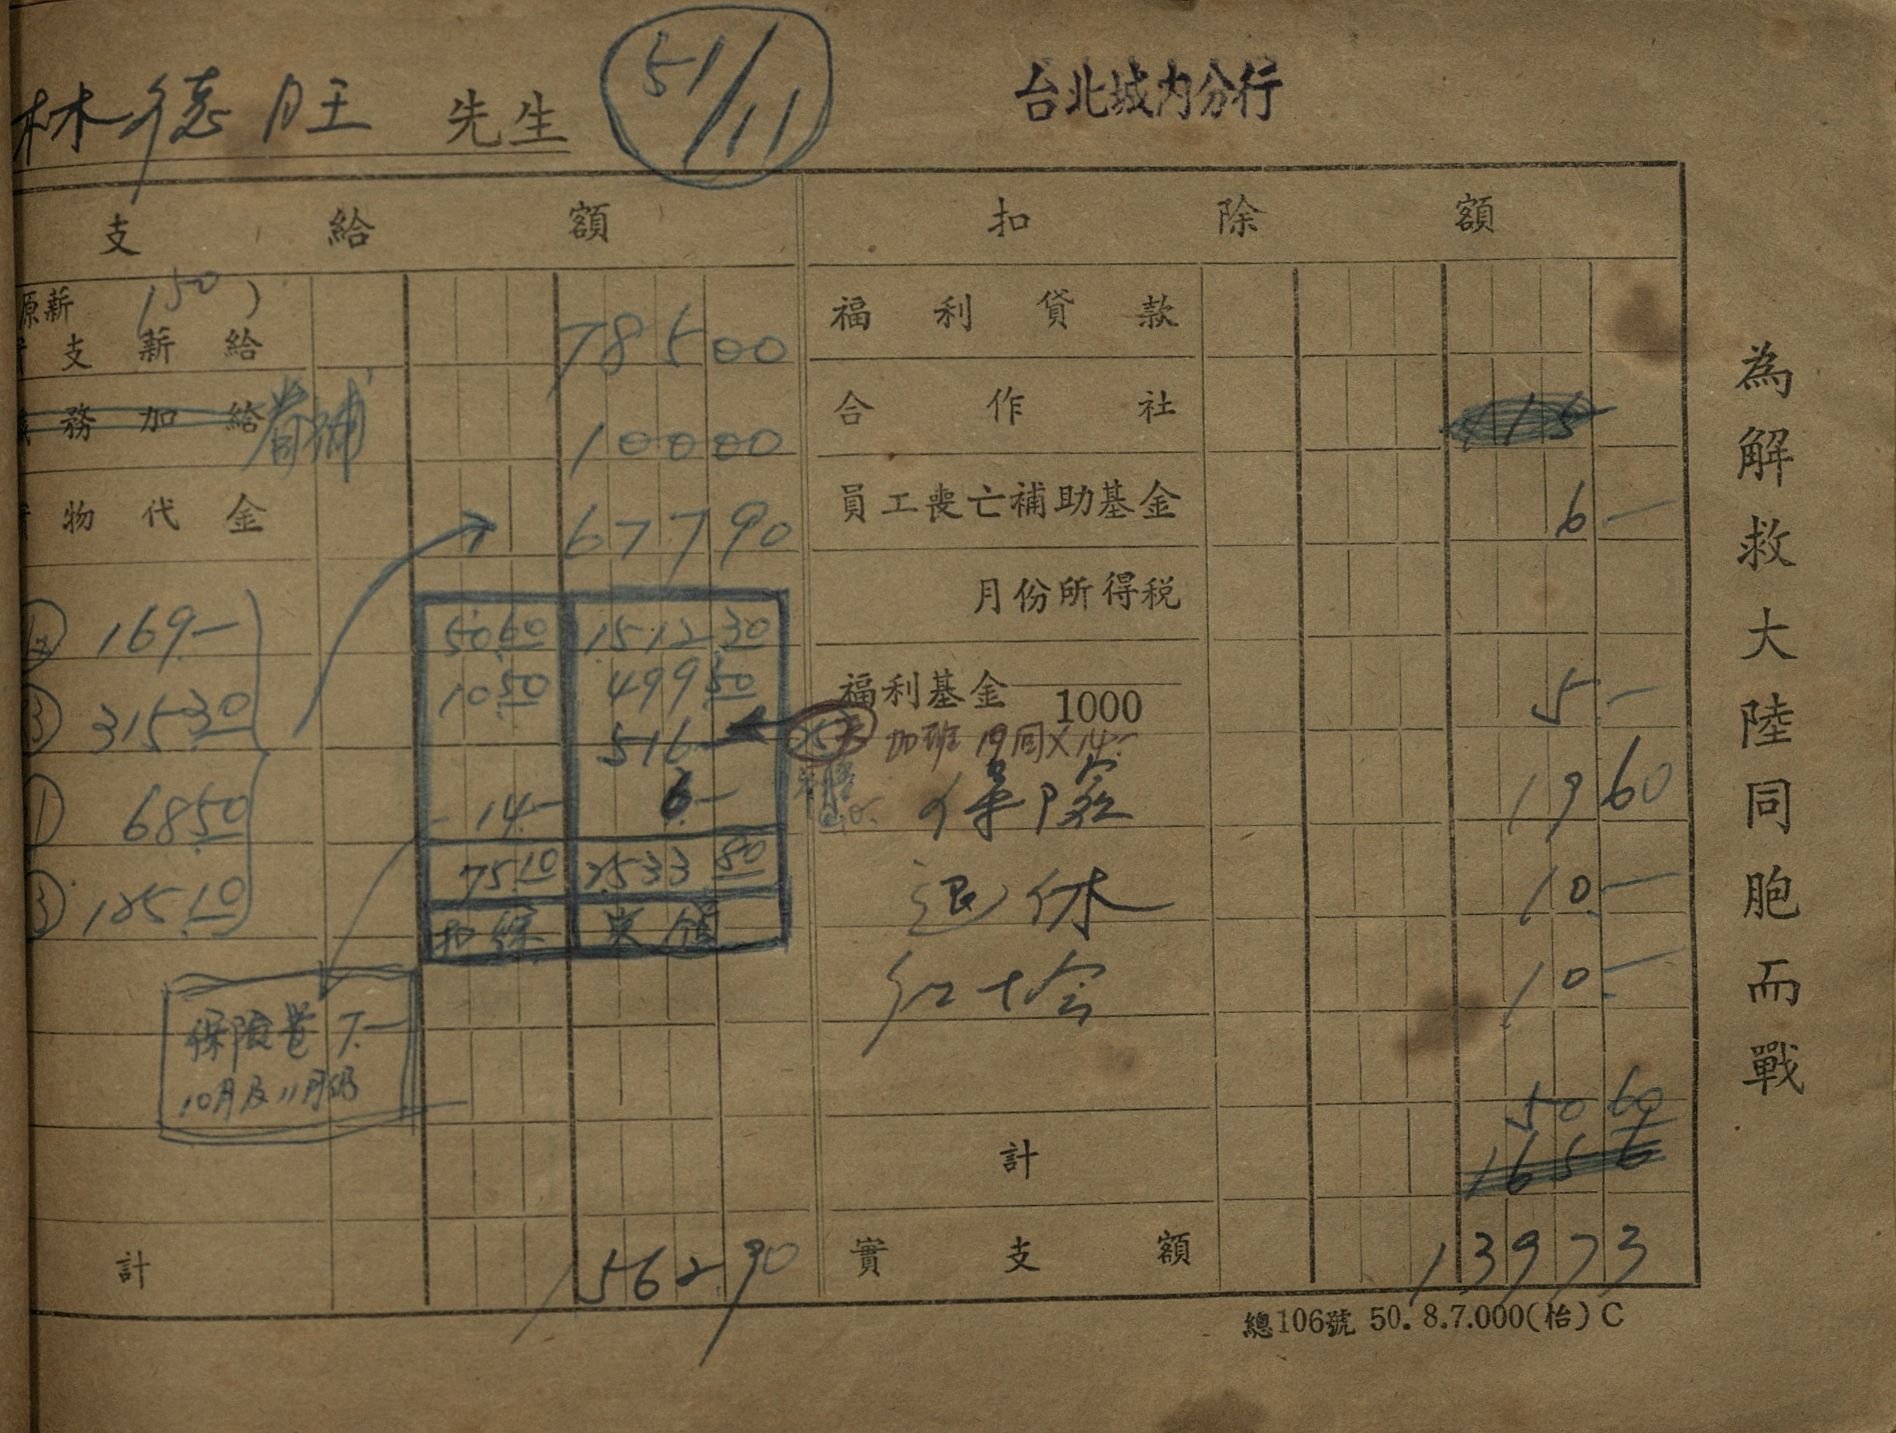 林德旺 先生 51/11 台北城内分行
支給額 扣除額
原薪 150)
支薪給 78500 福利貸款
務加給 眷補 10000 合作社 115
物代金 67790 員工喪亡補助基金 6—
月份所得税
169— 50.60 1512.30
315.30 10.50 499.50 福利基金 1000 5—
516— 加班 19同×14—
68.50 14— 6— 保險 19 60
185.10 75.10 2533.80 退休 10—
扣除 實領 紅十會 10—
保險卷 7.—
10月及11月份
50 60
計 165 6
計 156290 實支額 13973
總106號 50.8.7.000(怡)C
為解救大陸同胞而戰